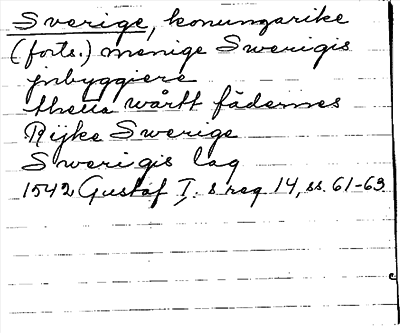 Sverige, konungarike
(forts.) menige Swerigis
jnbyggiere
thetta wårtt fädernes
Rijke Swerige
Swerigis lag
1542 Gustaf I:s reg 14, ss. 61-63